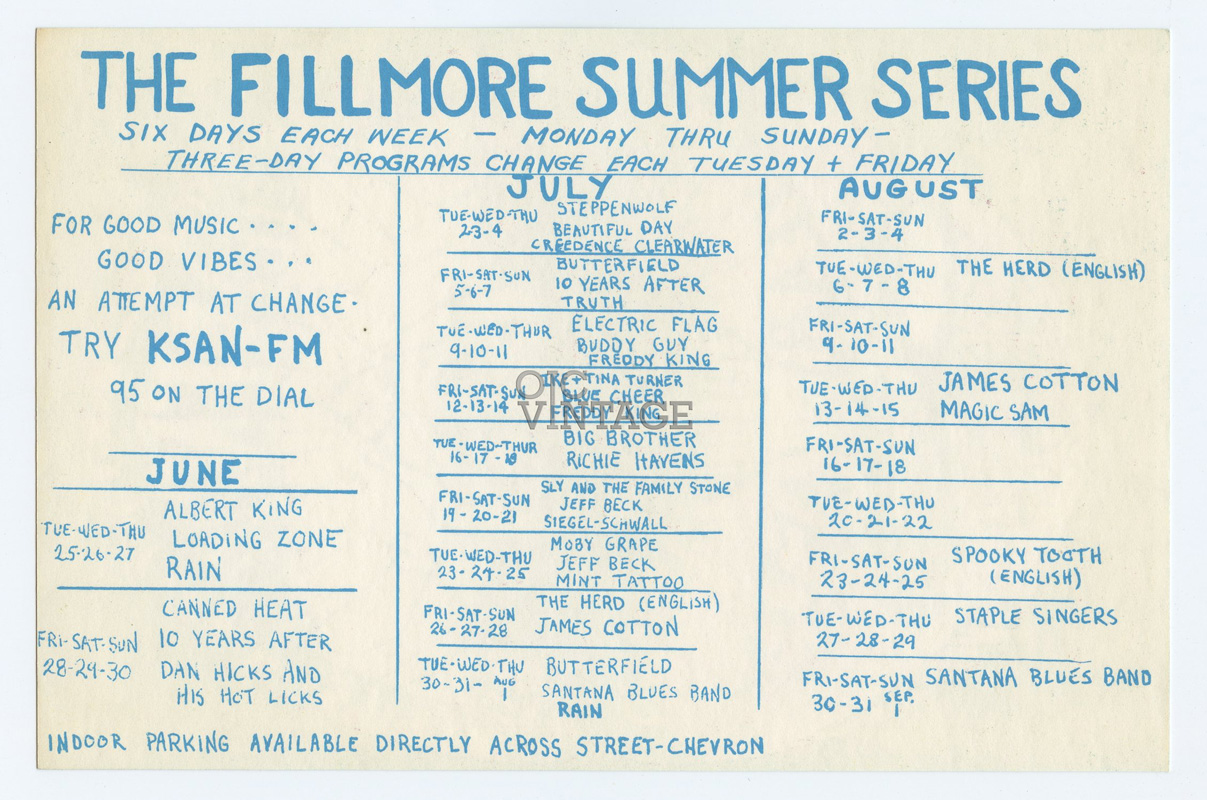 THE FILLMORE SUMMER SERIES
SIX DAYS EACH WEEK — MONDAY THRU SUNDAY —
THREE-DAY PROGRAMS CHANGE EACH TUESDAY + FRIDAY
FOR GOOD MUSIC . . . .
GOOD VIBES . . .
AN ATTEMPT AT CHANGE.
TRY KSAN-FM
95 ON THE DIAL
JUNE
TUE-WED-THU
25-26-27
ALBERT KING
LOADING ZONE
RAIN
FRI-SAT-SUN
28-29-30
CANNED HEAT
10 YEARS AFTER
DAN HICKS AND
HIS HOT LICKS
JULY
TUE-WED-THU
2-3-4
STEPPENWOLF
BEAUTIFUL DAY
CREEDENCE CLEARWATER
FRI-SAT-SUN
5-6-7
BUTTERFIELD
10 YEARS AFTER
TRUTH
TUE-WED-THUR
9-10-11
ELECTRIC FLAG
BUDDY GUY
FREDDY KING
FRI-SAT-SUN
12-13-14
IKE + TINA TURNER
BLUE CHEER
FREDDY KING
TUE-WED-THUR
16-17-18
BIG BROTHER
RICHIE HAVENS
FRI-SAT-SUN
19-20-21
SLY AND THE FAMILY STONE
JEFF BECK
SIEGEL-SCHWALL
TUE-WED-THU
23-24-25
MOBY GRAPE
JEFF BECK
MINT TATTOO
FRI-SAT-SUN
26-27-28
THE HERD (ENGLISH)
JAMES COTTON
TUE-WED-THU
30-31- AUG 1
BUTTERFIELD
SANTANA BLUES BAND
RAIN
AUGUST
FRI-SAT-SUN
2-3-4
TUE-WED-THU
6-7-8
THE HERD (ENGLISH)
FRI-SAT-SUN
9-10-11
TUE-WED-THU
13-14-15
JAMES COTTON
MAGIC SAM
FRI-SAT-SUN
16-17-18
TUE-WED-THU
20-21-22
FRI-SAT-SUN
23-24-25
SPOOKY TOOTH
(ENGLISH)
TUE-WED-THU
27-28-29
STAPLE SINGERS
FRI-SAT-SUN
30-31 SEP. 1
SANTANA BLUES BAND
INDOOR PARKING AVAILABLE DIRECTLY ACROSS STREET-CHEVRON
VINTAGE